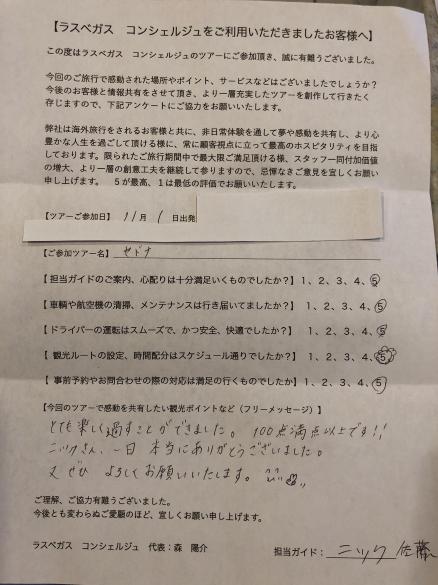 【ラスベガス コンシェルジュをご利用いただきましたお客様へ】
この度はラスベガス コンシェルジュのツアーにご参加頂き、誠に有難うございました。
今回のご旅行で感動された場所やポイント、サービスなどはございましたでしょうか？
今後のお客様と情報共有をさせて頂き、より一層充実したツアーを創作して行きたく
存じますので、下記アンケートにご協力をお願いいたします。
弊社は海外旅行をされるお客様と共に、非日常体験を通して夢や感動を共有し、より心
豊かな人生を過ごして頂ける様に、常に顧客視点に立って最高のホスピタリティを目指
しております。限られたご旅行期間中で最大限ご満足頂ける様、スタッフ一同付加価値
の増大、より一層の創意工夫を継続して参りますので、忌憚なきご意見を宜しくお願い
申し上げます。 5が最高、1は最低の評価でお願いいたします。
【ツアーご参加日】 11月 1日出発
【ご参加ツアー名】 セドナ
【担当ガイドのご案内、心配りは十分満足いくものでしたか？】1、2、3、4、5
【車輌や航空機の清掃、メンテナンスは行き届いてましたか？】 1、2、3、4、5
【ドライバーの運転はスムーズで、かつ安全、快適でしたか？】 1、2、3、4、5
【観光ルートの設定、時間配分はスケジュール通りでしたか？】 1、2、3、4、5
【事前予約やお問合わせの際の対応は満足の行くものでしたか】 1、2、3、4、5
【今回のツアーで感動を共有したい観光ポイントなど（フリーメッセージ）】
とても楽しく過すことができました。100点満点以上です!!
ニックさん、一日 本当にありがとうございました。
又 ぜひ よろしくお願いいたします。
ご理解、ご協力有難うございました。
今後とも変わらぬご愛顧のほど、宜しくお願い申し上げます。
ラスベガス コンシェルジュ 代表：森 陽介
担当ガイド： ニック 佐藤